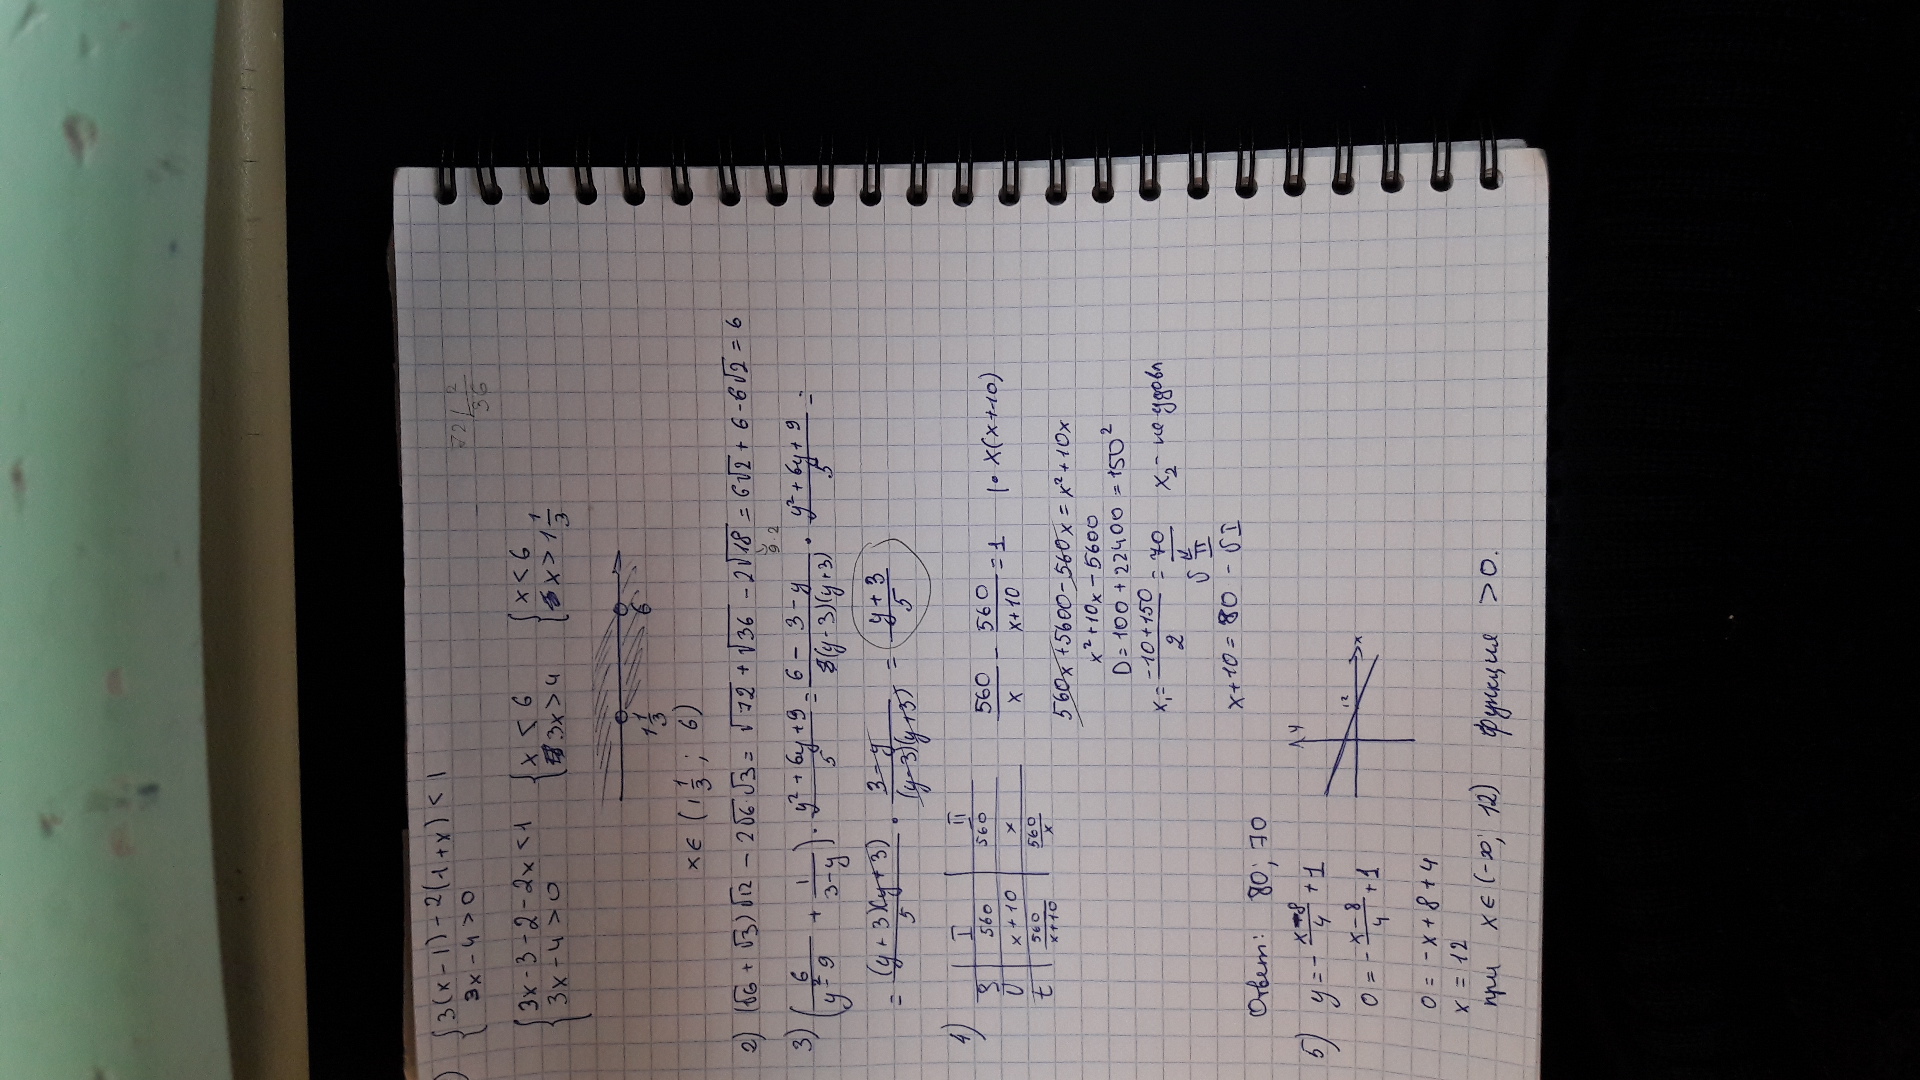 ) { 3(x-1) - 2(1+x) < 1
3x - 4 > 0
72 | 2
36
{ 3x - 3 - 2 - 2x < 1 { x < 6 { x < 6
{ 3x - 4 > 0 3x > 4 x > 1 1/3
1 1/3 6
x ∈ (1 1/3 ; 6)
2) (√6 + √3)√12 - 2√6·√3 = √72 + √36 - 2√18 = 6√2 + 6 - 6√2 = 6
9·2
3) (6/(y²-9) + 1/(3-y)) · (y²+6y+9)/5 = (6-3-y)/((y-3)(y+3)) · (y²+6y+9)/5 =
= ((y+3)(y+3))/5 · (3-y)/((y-3)(y+3)) = -(y+3)/5
4) I II
S 560 560
v x+10 x
t 560/(x+10) 560/x
560/x - 560/(x+10) = 1 | · x(x+10)
560x + 5600 - 560x = x² + 10x
x² + 10x - 5600
D = 100 + 22400 = 150²
x₁ = (-10+150)/2 = 70 x₂ - не удовл
v II
x + 10 = 80 - v I
Ответ: 80; 70
5) y = -(x-8)/4 + 1
y
x
12
0 = -(x-8)/4 + 1
0 = -x + 8 + 4
x = 12
при x ∈ (-∞; 12) функция > 0.